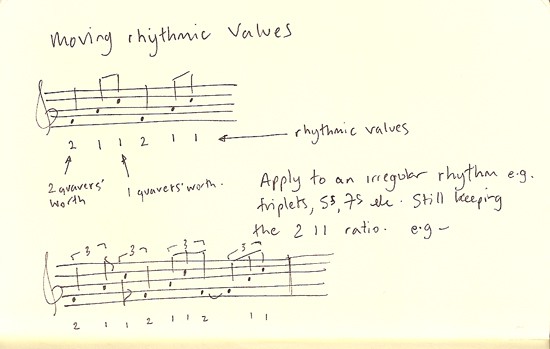 Moving rhythmic values
2 1 1 2 1 1
rhythmic values
2 quavers'
worth
1 quavers' worth.
Apply to an irregular rhythm e.g.
triplets, 5s, 7s etc. Still keeping
the 2 1 1 ratio. e.g -
3 3 3 3
2 1 1 2 1 1 2 1 1